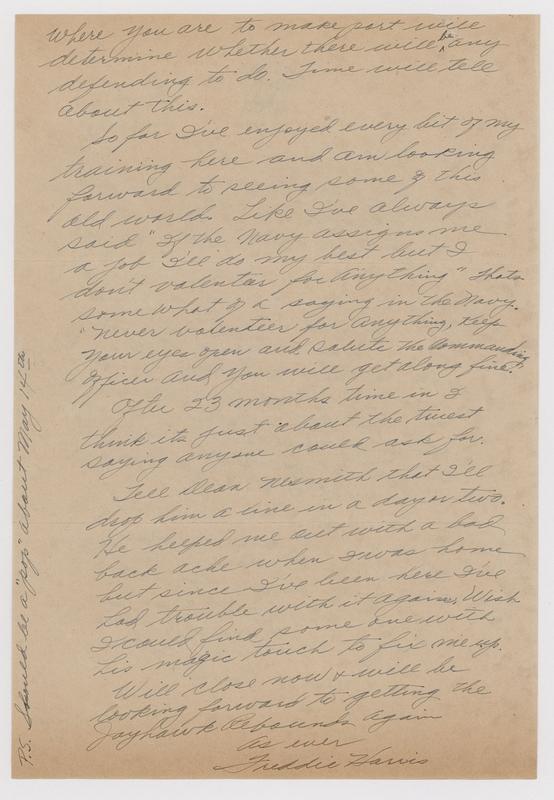 Where you are to make port will
determine whether there will be any
defending to do. Time will tell
about this.
So far I've enjoyed every bit of my
training here and am looking
forward to seeing some of this
old world. Like I've always
said "If the Navy assigns me
a job I'll do my best but I
don't valenteer for anything" Thats
somewhat of a saying in the Navy.
"Never valenteer for anything, Keep
your eyes open and salute the Commanding
Officer and you will get along fine."
After 23 months time in I
think its just about the truest
saying anyone could ask for.
Tell Dean Nesmith that I'll
drop him a line in a day or two.
He helped me out with a bad
back ache when I was home
but since I've been here I've
had trouble with it again. Wish
I could find some one with
his magic touch to fix me up.
Will close now & will be
looking forward to getting the
Jayhawk Rebounds again
As ever
Freddie Harris
P.S. Should be a "pop" about May 14th